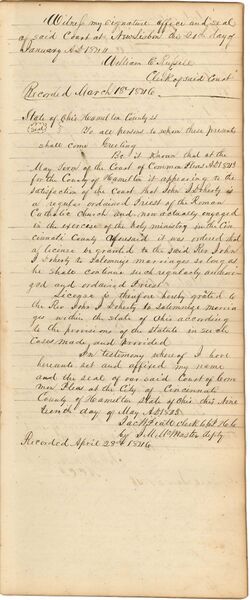 Witness my signature office and seal
of said Court at New Lisbon the 21st day of
January AD 1844
William E Russell
Clerk of said Court
Recorded March 18th 1846
State of Ohio Hamilton County ss
(Seal) To all persons to whom these presents
shall come Greeting
Be it known that at the
May Term of the Court of Common Pleas AD 1843
for the County of Hamilton it appearing to the
satisfaction of the Court that John I Doherty is
a regular ordained Priest of the Roman
Catholic Church and now actually engaged
in the exercise of the holy ministry in the Cin
cinnati County aforesaid it was ordered that
a license be granted to the said Rev John
I Doherty to solemnize marriages so long as
he shall continue such regularly authori
zed and ordained Priest
License is therefore hereby granted to
the Rev John I Doherty to solemnize marria
ges within the State of Ohio according
to the provisions of the statute in such
cases made and provided
In testimony whereof I have
hereunto set and affixed my name
and the seal of our said Court of Com
mon Pleas at the City of Cincinnati
County of Hamilton State of Ohio this Nine
teenth day of May AD 1843
clerk
By McMaster Depty
Recorded April 23d 1846